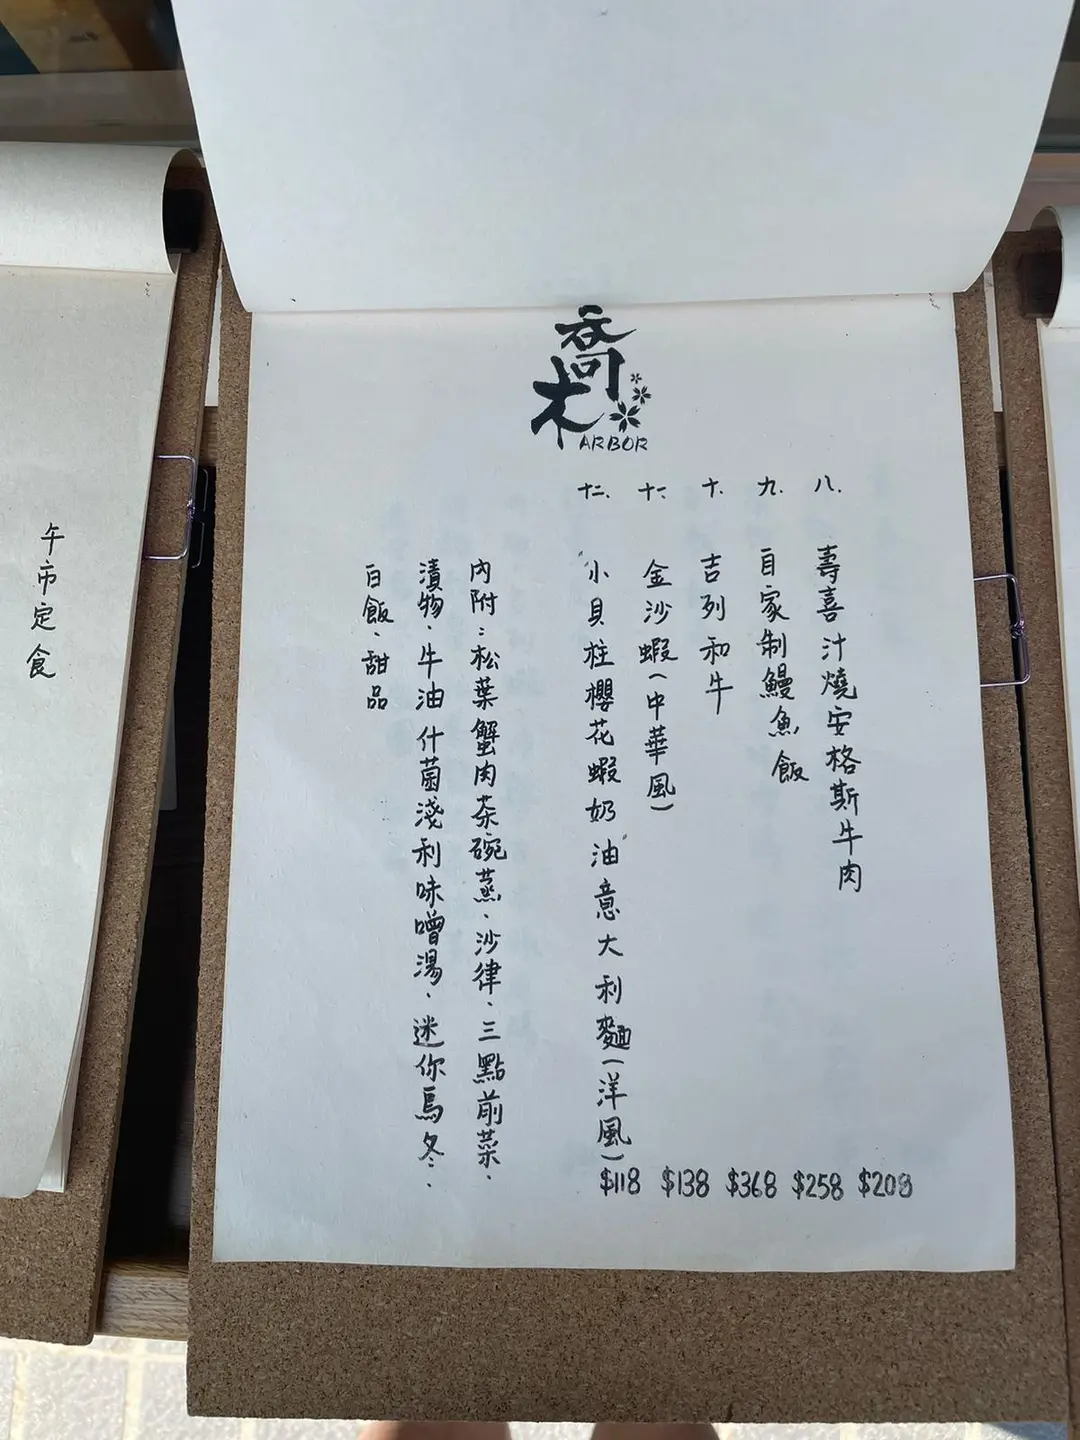 喬木
ARBOR
八. 壽喜汁燒安格斯牛肉 $208
九. 自家制鰻魚飯 $258
十. 吉列和牛 $368
十一. 金沙蝦(中華風) $138
十二. 小貝柱櫻花蝦奶油意大利麵(洋風) $118
內附:松葉蟹肉茶碗蒸、沙律、三點前菜、
漬物、牛油什菌淺利味噌湯、迷你烏冬、
白飯、甜品
午市定食